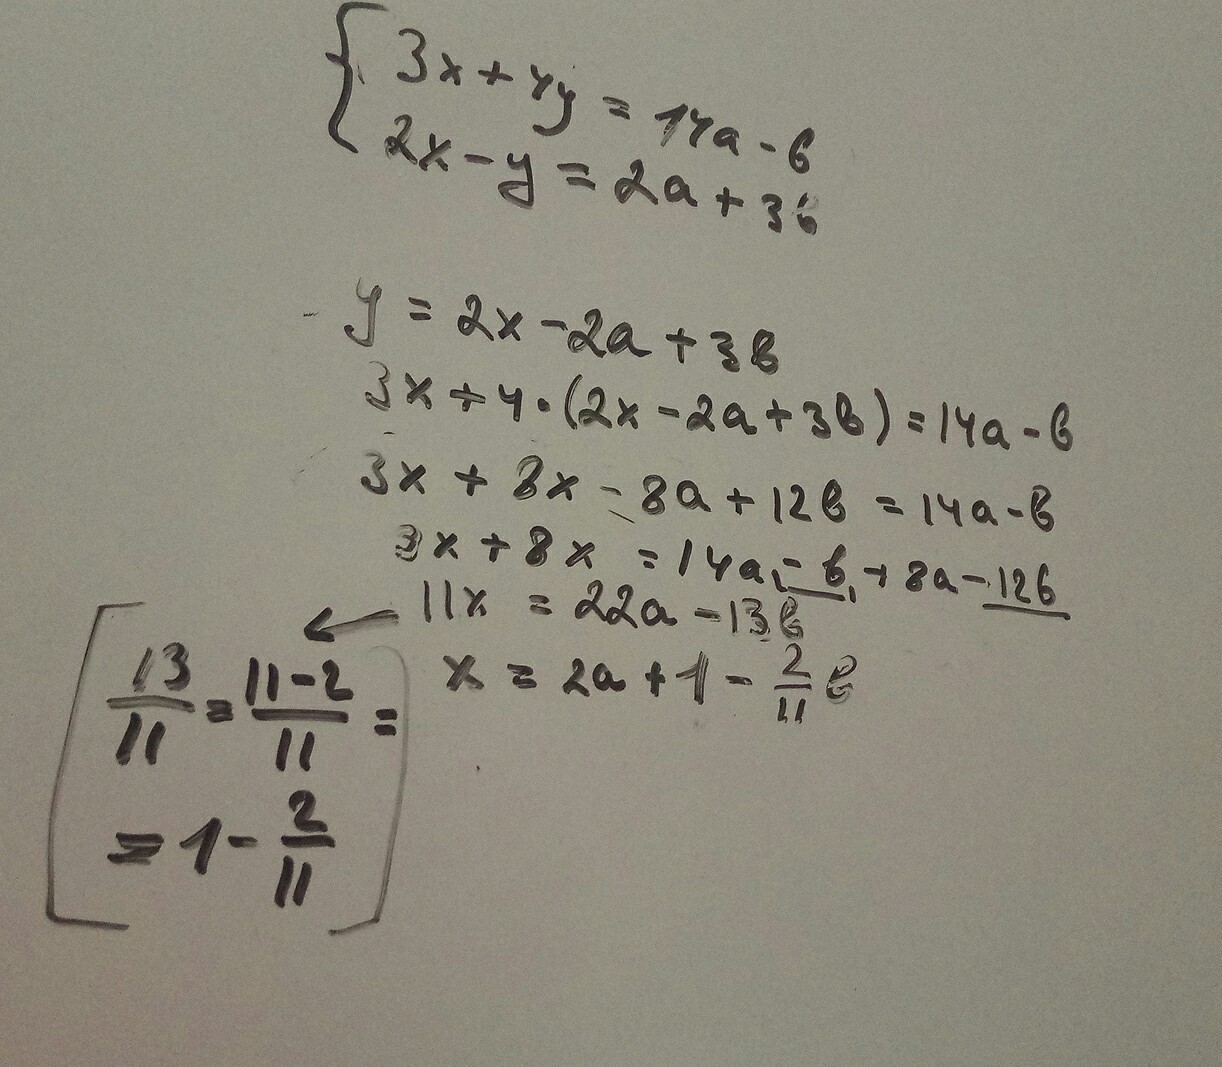 3x + 4y = 14a - в
2x - y = 2a + 3в
y = 2x - 2a + 3в
3x + 4·(2x - 2a + 3в) = 14a - в
3x + 8x - 8a + 12в = 14a - в
3x + 8x = 14a - в + 8a - 12в
11x = 22a - 13в
x = 2a + 1 - 2/11 в
13/11 = 11-2/11 =
= 1 - 2/11